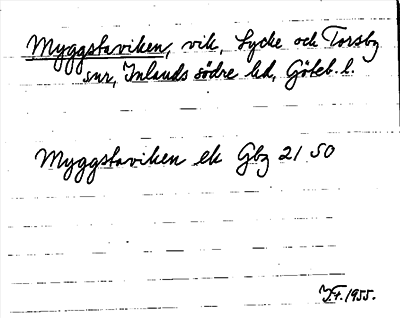 Myggstaviken, vik, Lycke och Torsby
snr, Inlands södre hd, Göteb. l.
Myggstaviken ek Gbg 21 SO
1955.